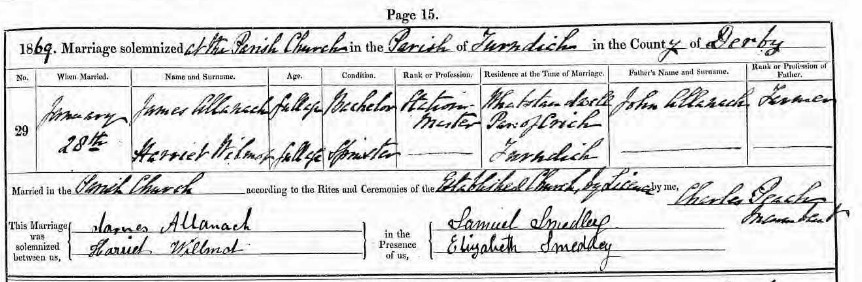 Page 15.
1869. Marriage solemnized at the Parish Church in the Parish of Turndich in the County of Derby
No. When Married. Name and Surname. Age. Condition. Rank or Profession. Residence at the Time of Marriage. Father's Name and Surname. Rank or Profession of Father.
29 January 28th James Allanach full age Bachelor Station Master Whatstandwell Par. of Crich John Allanach Farmer
Harriet Wilmot full age Spinster Turndich
Married in the Parish Church according to the Rites and Ceremonies of the Established Church, by Licence by me,
Charles Peach
This Marriage was solemnized between us, James Allanach
Harriet Willmot
in the Presence of us, Samuel Smedley
Elizabeth Smedley